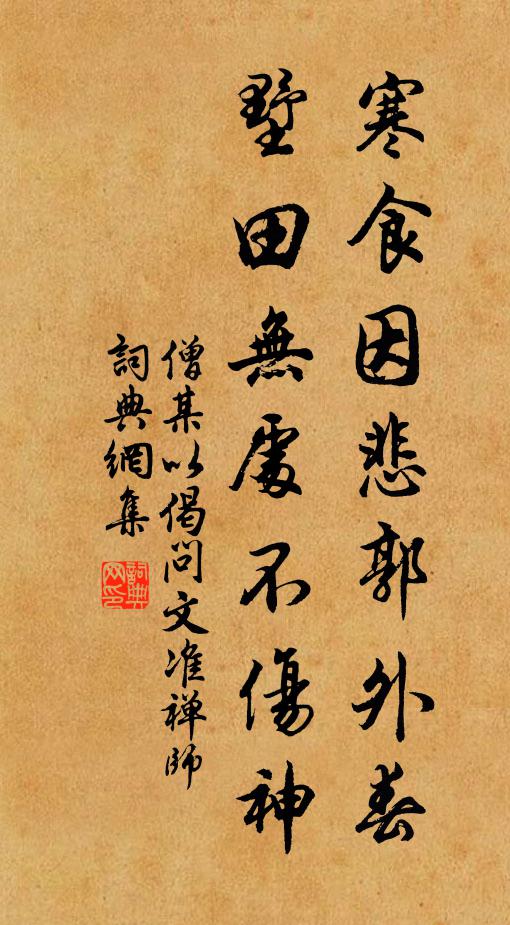 寒食因悲郭外春
墅田無處不傷神
僧某以偈問文准禅師
詞典網集
詞典网印